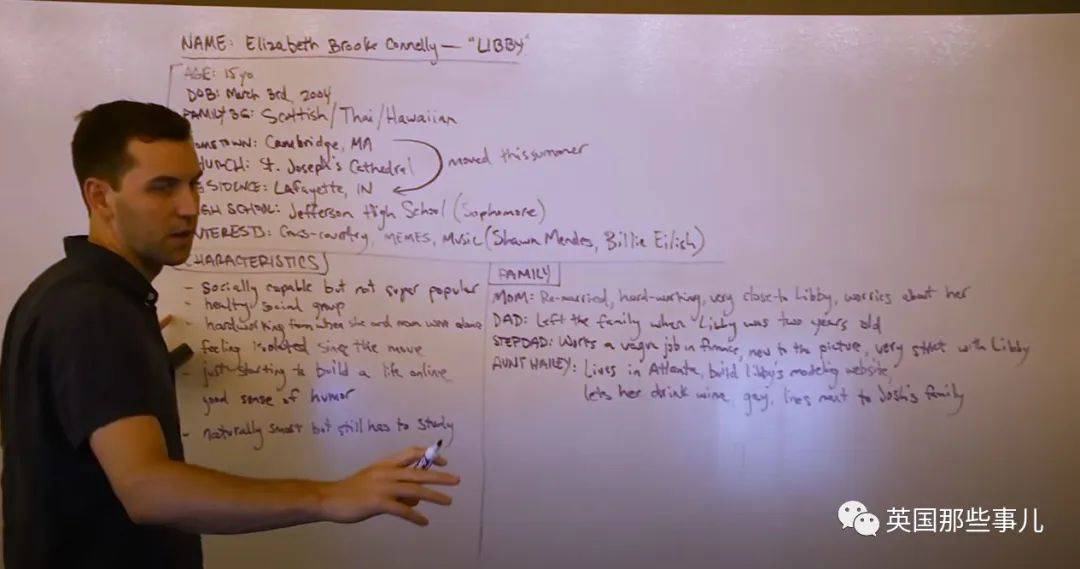 NAME: Elizabeth Brooke Connelly — "LIBBY"
AGE: 15yo
DOB: March 3rd, 2004
FAMILY BG: Scottish/Thai/Hawaiian
OMETOWN: Cambridge, MA
HURCH: St. Joseph's Cathedral
moved this summer
ESIDENCE: Lafayette, IN
IGH SCHOOL: Jefferson High School (Sophomore)
NTERESTS: Cross-country, MEMES, Music (Shawn Mendes, Billie Eilish)
CHARACTERISTICS
- Socially capable but not super popular
- healthy social group
- hardworking from when she and mom were alone
- feeling isolated since the move
- just starting to build a life online
good sense of humor
- naturally smart but still has to study
FAMILY
MOM: Re-married, hard-working, very close to Libby, worries about her
DAD: Left the family when Libby was two years old
STEPDAD: Works a vague job in finance, new to the picture, very strict with Libby
AUNT HAILEY: Lives in Atlanta, build Libby's modeling website,
lets her drink wine, gay, lives next to Josh's family
英国那些事儿